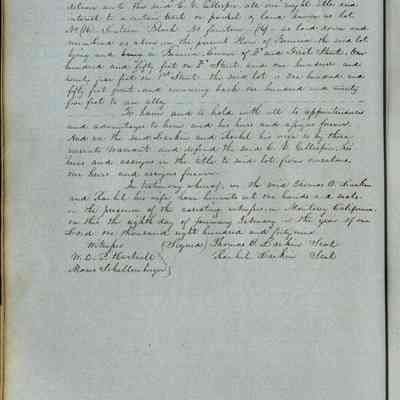 deliver unto the said C. V. Gillespie, all our right title and
interest to a certain tract or parcel of land known as Lot
No. (16) Sixteen Block No. fourteen (14) as laid down and
numbered as above in the present Plan of Benicia the said lot
lying and being in Benicia Corner of D and First Streets, One
hundred and fifty feet on D Street and one hundred and
twenty five feet on 1st Street. the said lot is one hundred and
fifty feet front and running back one hundred and twenty
five feet to an alley
To have and to hold with all its appurtenances
and advantages to him and his heirs and assigns forever
And we the said Larkin and Rachel his wife do by these
presents Warrant and defend the said C. V. Gillespie, his
heirs and assigns in the title to said lot from ourselves
our heirs and assigns forever.
In testimony whereof, we the said Thomas O. Larkin
and Rachel his wife have hereunto set our hands and seals.
in the presence of the assisting witnesses, in Monterey California.
on this the eighth day of January in the year of our
Lord one thousand eight hundred and forty nine
Witness (Signed) Thomas O. Larkin Seal
W. E. P. Hartnell Rachel Larkin Seal
Moses Schallenberger